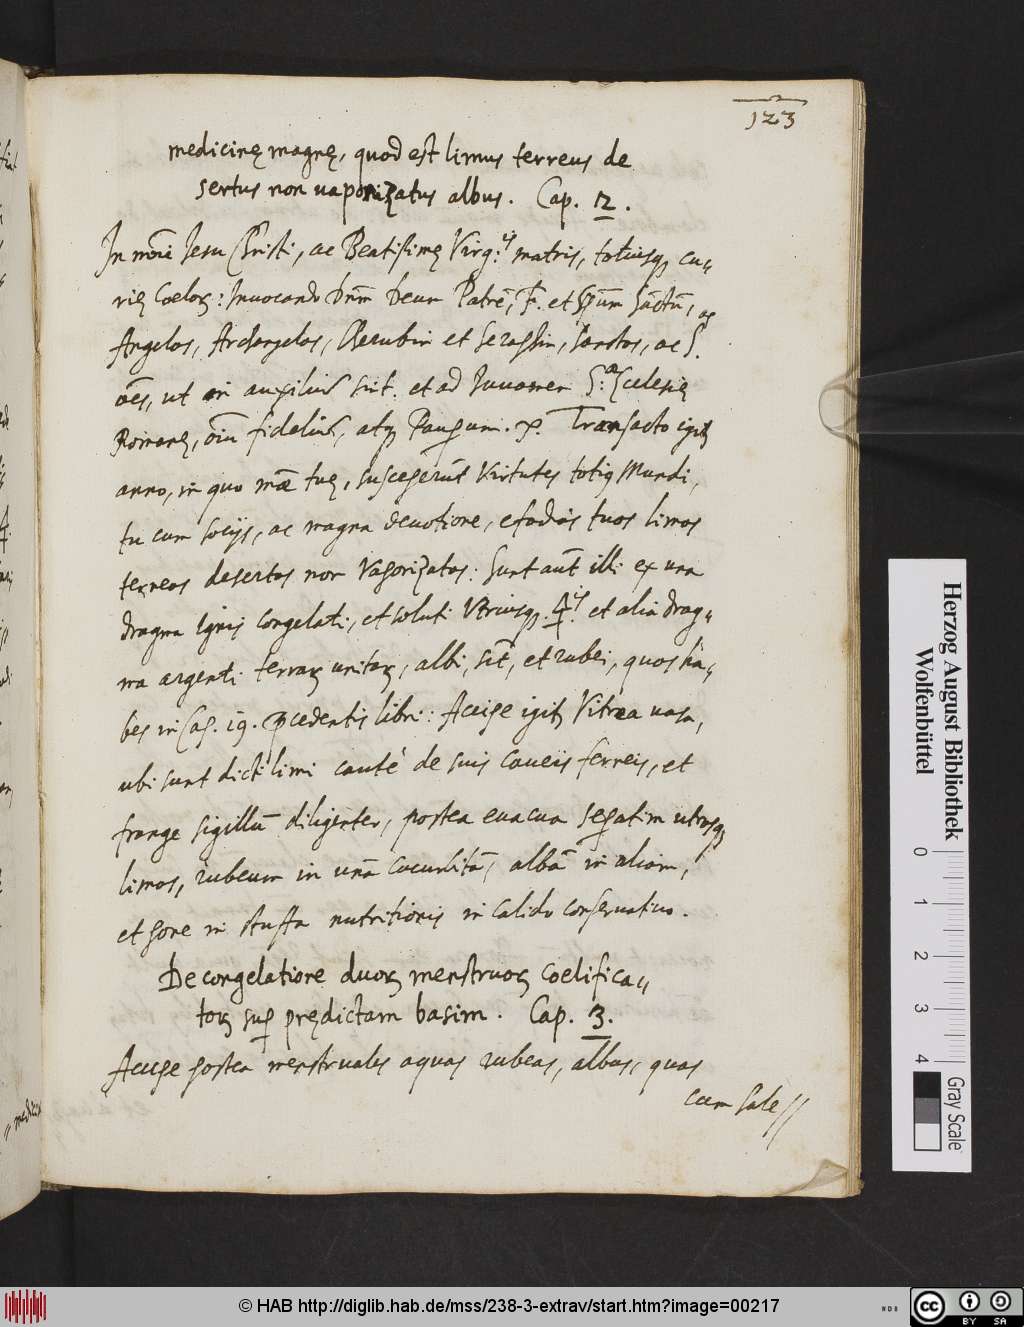 123
medicinę magnę, quod est limus terreus de
sertus non vaporizatus albus. Cap. 12.
In noīe Jesu Christi, ac Beatissimę Virg: matris, totiusq, cu„
rię Coeloꝝ: Invocando Dnm̄ Deum Patrē, F. et Spūm Sāctū, ac
Angelos, Archangelos, Cherubin et Seraffin, Sanctos, ac S.
oēs, ut in auxiliū sint. et ad Juvamen S: Ecclesię
Romanę, oīu fidelium, atq Pauperum. Transacto igit
anno, in quo tuę, susceperūt Virtutes totiq Mundi,
tu cum socijs, ac magna devotione, efodias tuos limos
terreos desertos non vaporizatos: Sunt aūt illi ex una
dragma Ignis congelati, et soluti Utriusq. et alia drag„
ma argenti terraꝝ unitaꝝ, albi, sīt, et rubei, quos ha„
bes in Cap. 19. pcedentis libri: Accipe igit Vitrea vasa,
ubi sunt dicti limi cautè de suis caveis ferreis, et
frange sigillū diligenter, postea evacua separatim utrosq
limos, rubeum in unā cucurbitā, albū in aliam,
et pone in stuffa nutritionis in calido conservativo.
De congelatione duoꝝ menstruoꝝ coelifica„
toꝝ sup prędictam basim. Cap. 3.
Accipe postea menstruales aquas rubeas, albas, quas
cum sale //
„ medicin
Herzog August Bibliothek
Wolfenbüttel
0 1 2 3 4
Gray Scale
© HAB http://diglib.hab.de/mss/238-3-extrav/start.htm?image=00217
cc BY SA